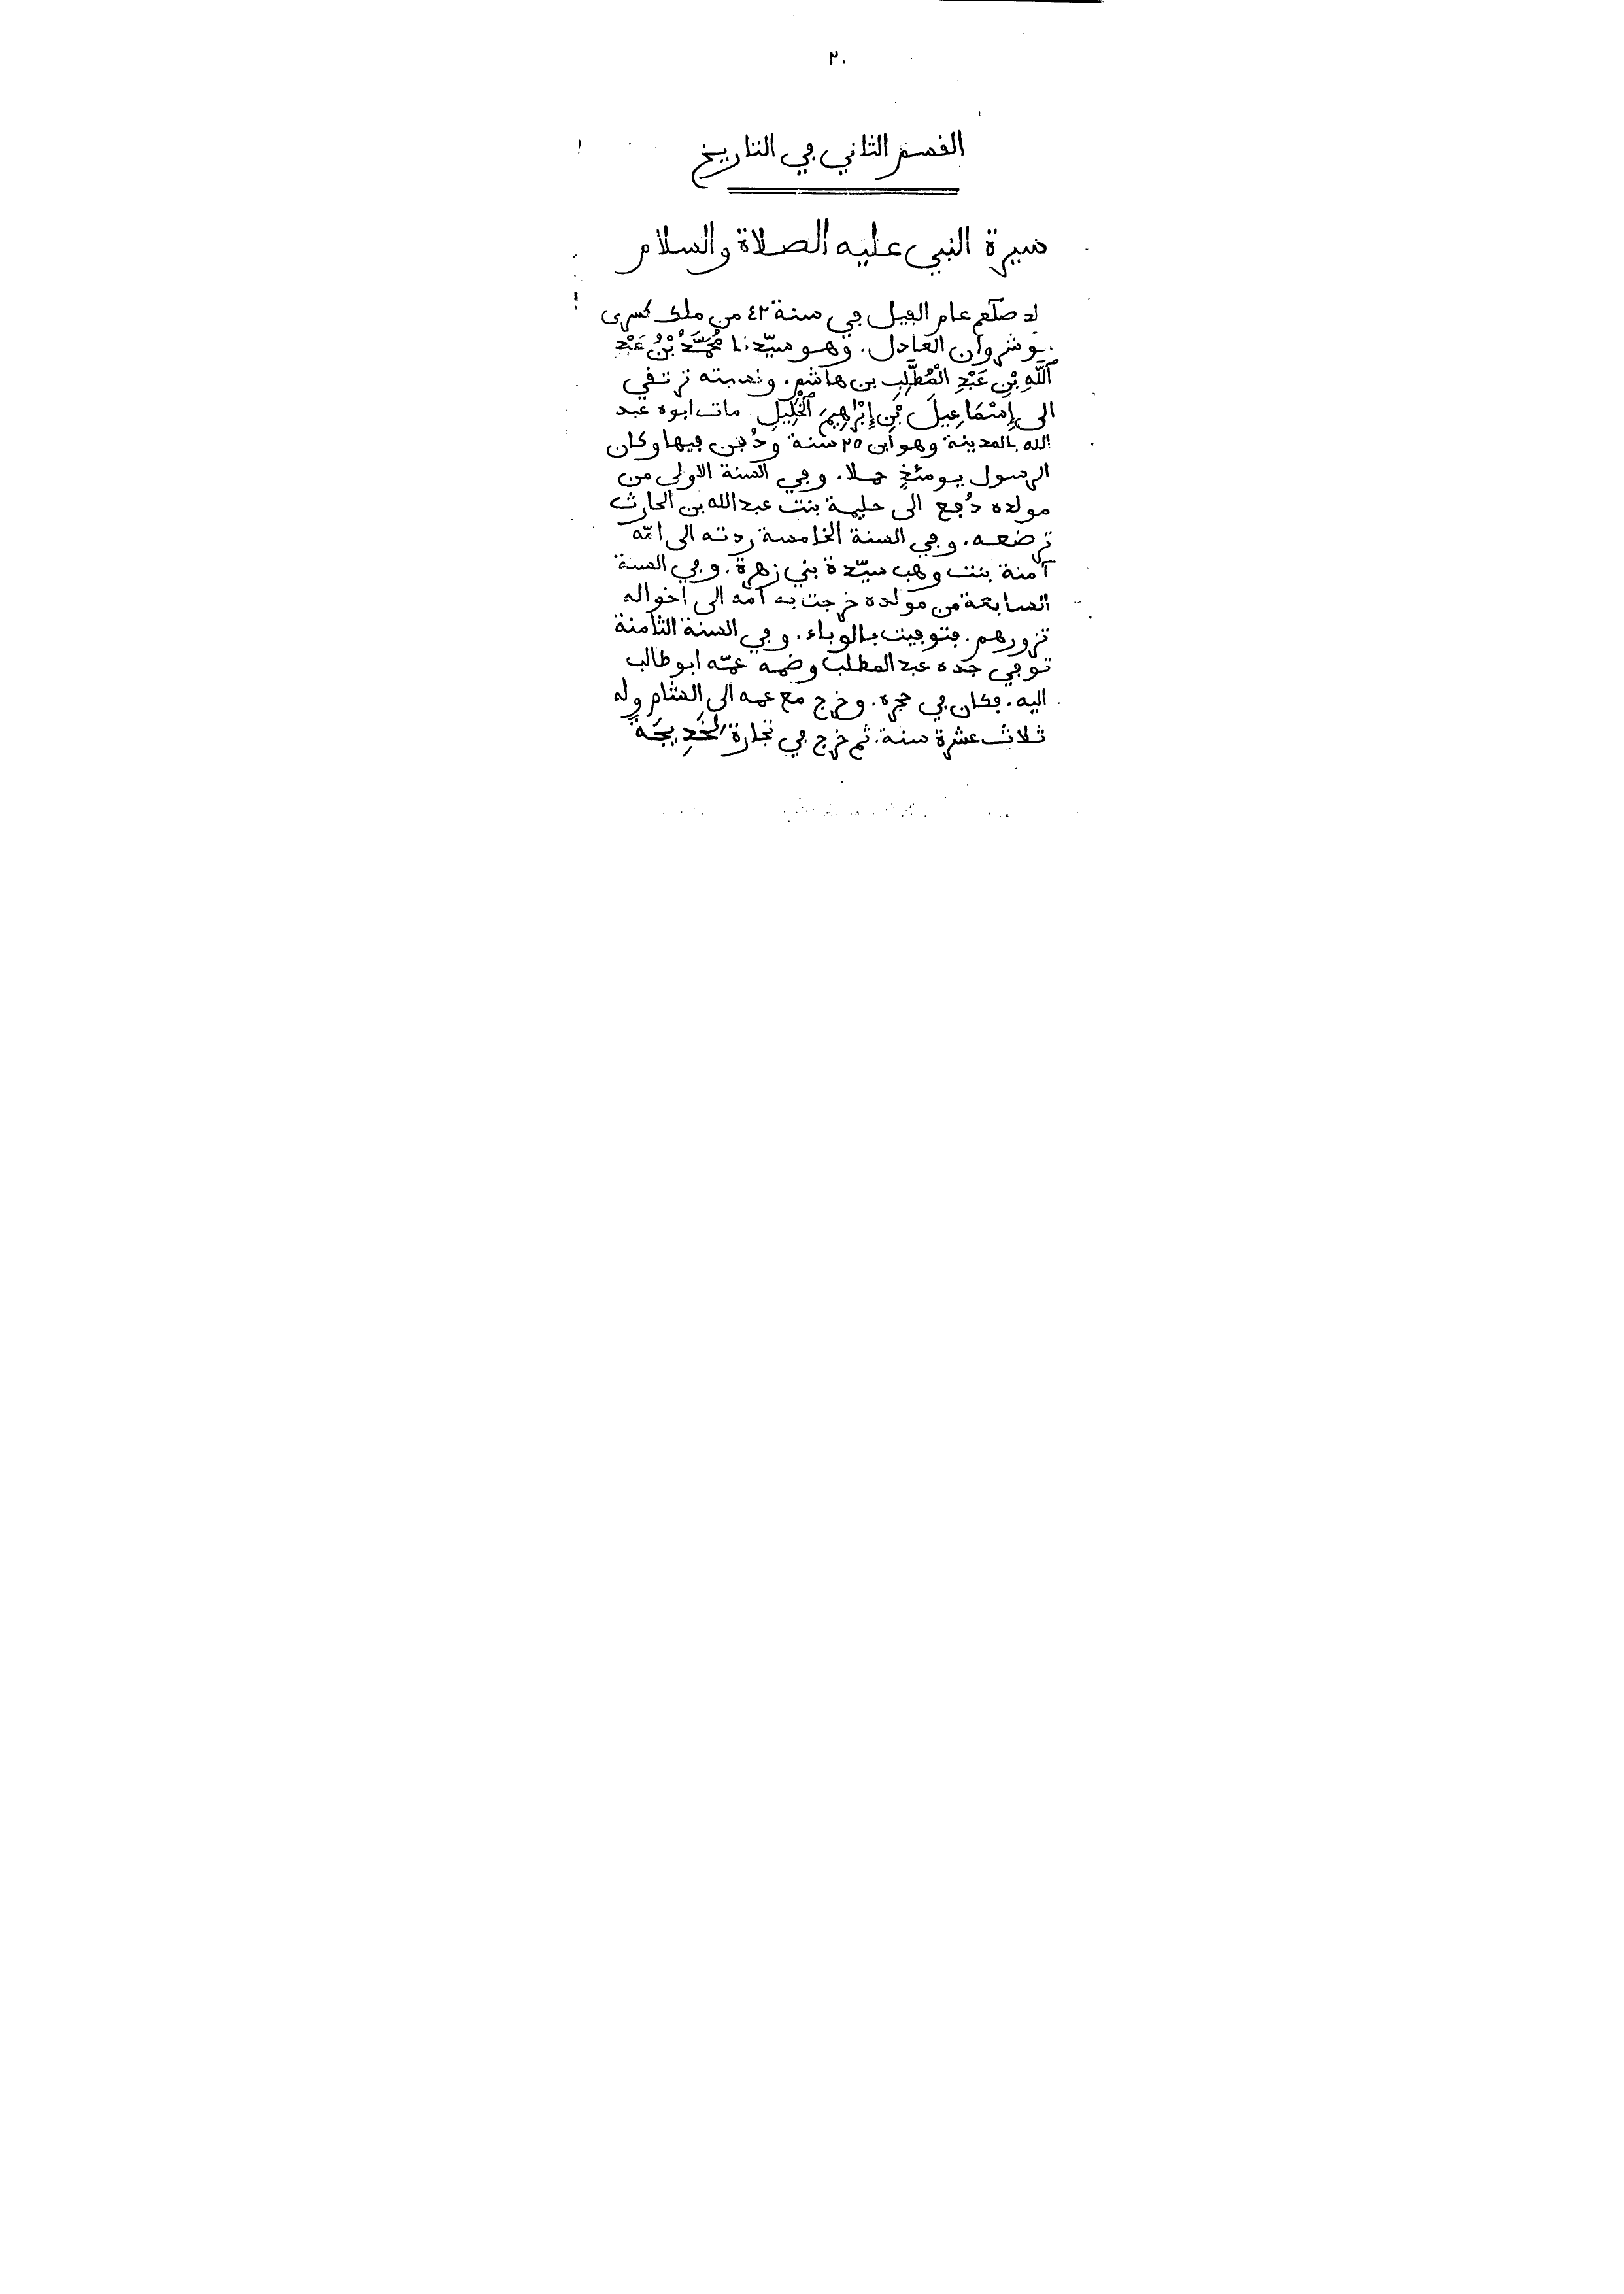 ٢٠
القسم الثاني في التاريخ
سيرة النبي عليه الصلاة والسلام
لد صلعم عام الفيل في سنة ٤٢ من ملك كسرى
نوشروان العادل. وهو سيّدنا مُحَمَّدُ بْنُ عَبْدِ
ٱللّٰهِ بْنِ عَبْدِ الْمُطَّلِبِ بن هاشم. ونسبته ترتقي
الى إِسْمَاعِيلَ بْنِ إِبْرَاهِيمَ ٱلْخَلِيلِ مات ابوه عبد
الله بالمدينة وهو ابن ٢٥ سنة ودُفن فيها وكان
الرسول يومئذٍ حملا. وفي السنة الاولى من
مولده دُفع الى حليمة بنت عبد الله بن الحارث
ترضعه. وفي السنة الخامسة ردته الى امّه
آمنة بنت وهب سيّدة بني زهرة. وفي السنة
السابعة من مولده خرجت به امّه الى اخواله
تزورهم. فتوفيت بالوباء. وفي السنة الثامنة
توفي جده عبد المطلب وضمه عمّه ابو طالب
اليه. فكان في حجره. وخرج مع عمه الى الشام وله
ثلاث عشرة سنة. ثم خرج في تجارة لِخَدِيجَةَ